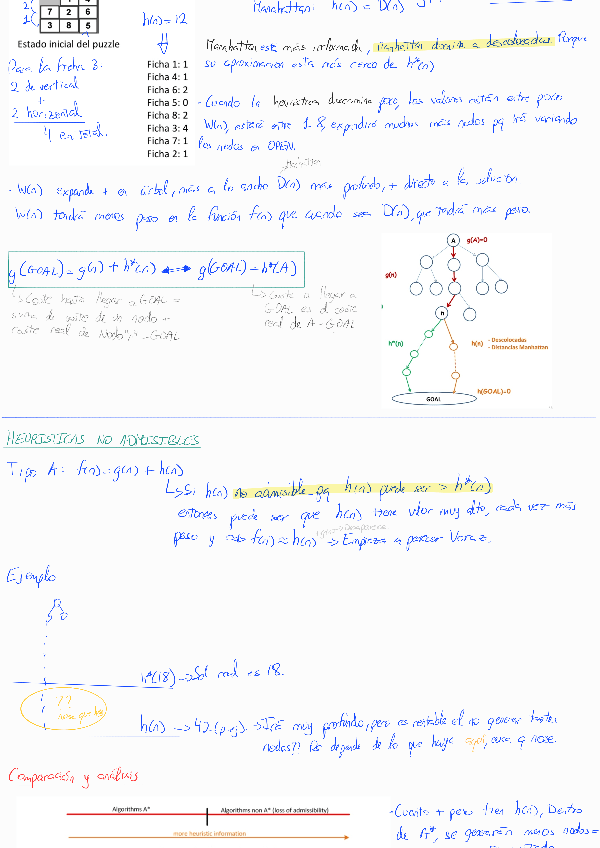 Manhattan: h(n) = D(n)
7 2 6
3 8 5
Estado inicial del puzzle
h(n)=12
Ficha 1: 1
Ficha 4: 1
Ficha 6: 2
Ficha 5: 0
Ficha 8: 2
Ficha 3: 4
Ficha 7: 1
Ficha 2: 1
Para la ficha 3.
2 de vertical
+
2 horizontal
4 en total.
Manhattan está más informada, manhattan domina a descolocadas porque
su aproximación está más cerca de h*(n)
- Cuando la heurística discrimina poco, los valores estarán entre pocos
W(n), estará entre 1-8, expandirá muchos más nodos pq irá variando
los nodos en OPEN.
- W(n) expande + en árbol, más a lo ancho D(n) más profundo, + directo a la solución
W(n) tendrá menos peso en la función f(n) que cuando sea D(n), que tendrá más peso.
g(GOAL) = g(n) + h*(n) ⟷ g(GOAL) = h*(A)
Coste hasta llegar a GOAL =
suma de coste de un nodo +
coste real de Nodo "n" - GOAL
Coste a llegar a
GOAL es el coste
real de A - GOAL
A
g(A)=0
g(n)
n
h*(n)
h(n)
- Descolocadas
- Distancias Manhattan
h(GOAL)=0
GOAL
HEURISTICAS NO ADMISIBLES
Tipo A: f(n) = g(n) + h(n)
Si h(n) no admisible - pq h(n) puede ser > h*(n)
entonces puede ser que h(n) tiene valor muy alto, cada vez más
peso y f(n) ≈ h(n) → Empieza a parecer Voraz.
Ejemplo
h*(18) → Sol real es 18.
??
h(n) → 42 (p.ej) → Iré muy profundo, pero es rentable el no generar tantos
nodos?? Pues depende de lo que haya aquí,
Comparación y análisis
Algorithms A*
Algorithms non A* (loss of admissibility)
more heuristic information
- Cuanto + peso tien h(n), Dentro
de A*, se generarán menos nodos =